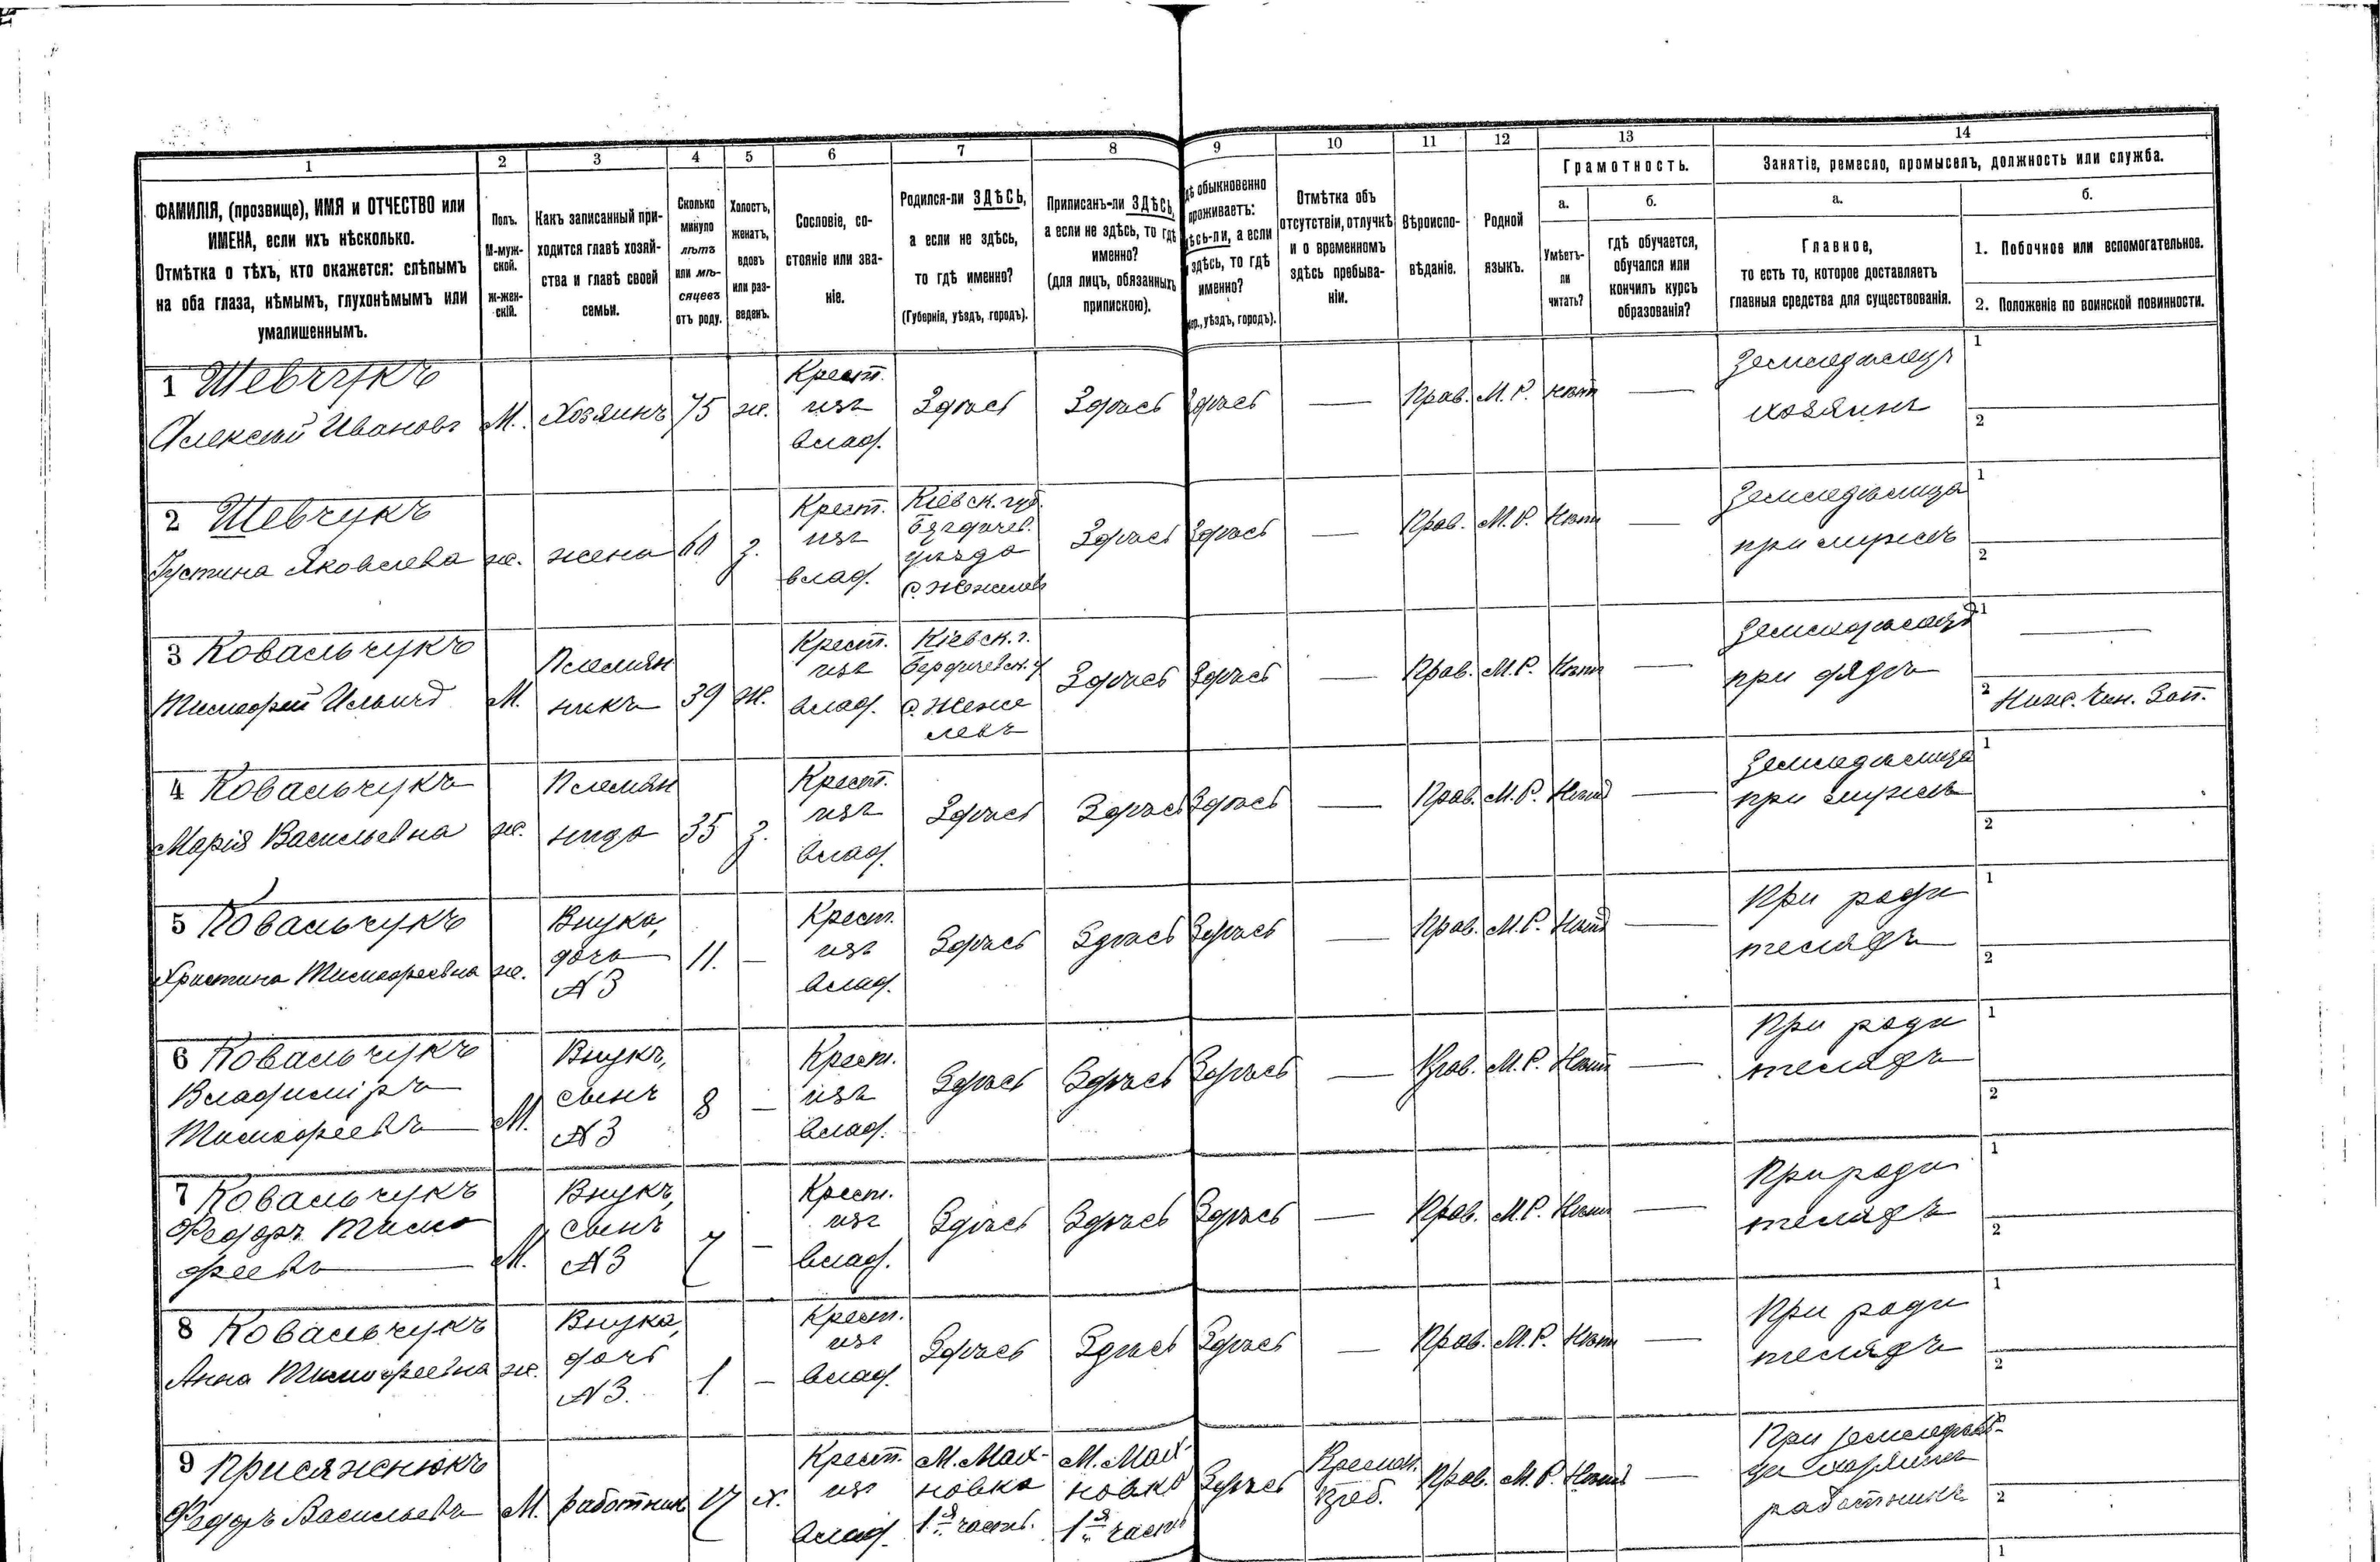 1 2 3 4 5 6 7 8 9 10 11 12 13 14
ФАМИЛІЯ, (прозвище), ИМЯ и ОТЧЕСТВО или
ИМЕНА, если ихъ нѣсколько.
Отмѣтка о тѣхъ, кто окажется: слѣпымъ
на оба глаза, нѣмымъ, глухонѣмымъ или
умалишеннымъ.
Полъ.
М-муж-
ской.
Ж-жен-
скій.
Какъ записанный при-
ходится главѣ хозяй-
ства и главѣ своей
семьи.
Сколько
минуло
лѣтъ
или мѣ-
сяцевъ
отъ роду.
Холостъ,
женатъ,
вдовъ
или раз-
веденъ.
Сословіе, со-
стояніе или зва-
ніе.
Родился-ли ЗДѢСЬ,
а если не здѣсь,
то гдѣ именно?
(Губернія, уѣздъ, городъ).
Приписанъ-ли ЗДѢСЬ,
а если не здѣсь, то гдѣ
именно?
(для лицъ, обязанныхъ
припискою).
обыкновенно
проживаетъ:
здѣсь-ли, а если
здѣсь, то гдѣ
именно?
уѣздъ, городъ).
Отмѣтка объ
отсутствіи, отлучкѣ
и о временномъ
здѣсь пребыва-
ніи.
Вѣроиспо-
вѣданіе.
Родной
языкъ.
Грамотность.
а.
Умѣетъ-
ли
читать?
б.
гдѣ обучается,
обучался или
кончилъ курсъ
образованія?
Занятіе, ремесло, промыселъ, должность или служба.
а.
Главное,
то есть то, которое доставляетъ
главныя средства для существованія.
б.
1. Побочное или вспомогательное.
2. Положеніе по воинской повинности.
1 Шевчукъ
Алексѣй Ивановъ
М. Хозяинъ 75 ж.
Крест.
изъ
влад.
Здѣсь Здѣсь Здѣсь — Прав. М. Р. нѣтъ —
Земледѣлецъ
хозяинъ
1
2
2 Шевчукъ
Устина Яковлева
ж. жена 60 з.
Крест.
изъ
влад.
Кіевск. губ.
Бердичев.
уѣзда
с. Жежелевъ
Здѣсь Здѣсь — Прав. М. Р. Нѣтъ —
Земледѣлица
при мужѣ
1
2
3 Ковальчукъ
Тимофей Ильичъ
М.
Племян
никъ
39 Ж.
Крест.
изъ
влад.
Кіевск. г.
Бердичевск. у
с. Жеже
левъ
Здѣсь Здѣсь — Прав. М. Р. Нѣтъ —
Земледѣлецъ
при дядѣ
1 —
2 Ниж. Чин. Зап.
4 Ковальчукъ
Марія Васильевна
ж.
Племян
ница
35 з.
Крест.
изъ
влад.
Здѣсь Здѣсь Здѣсь — Прав. М. Р. Нѣтъ —
Земледѣлица
при мужѣ
1
2
5 Ковальчукъ
Христина Тимофеевна
ж.
Внука,
дочь
№3
11. —
Крест.
изъ
влад.
Здѣсь Здѣсь Здѣсь — Прав. М. Р. Нѣтъ —
При роди
теляхъ
1
2
6 Ковальчукъ
Владиміръ
Тимофеевъ
М.
Внукъ,
сынъ
№3
8 —
Крест.
изъ
влад.
Здѣсь Здѣсь Здѣсь — Прав. М. Р. Нѣтъ —
При роди
теляхъ
1
2
7 Ковальчукъ
Федоръ Тимо
феевъ
М.
Внукъ,
сынъ
№3
7 —
Крест.
изъ
влад.
Здѣсь Здѣсь Здѣсь — Прав. М. Р. Нѣтъ —
При роди
теляхъ
1
2
8 Ковальчукъ
Анна Тимофеевна
ж.
Внука,
дочь
№3.
1 —
Крест.
изъ
влад.
Здѣсь Здѣсь Здѣсь — Прав. М. Р. Нѣтъ —
При роди
теляхъ
1
2
9 Присяжнюкъ
Федоръ Васильевъ
М. работник 17 х.
Крест.
изъ
влад.
М. Мах-
новка
1я часть.
М. Мах-
новка
1я часть
Здѣсь
Времен.
преб.
Прав. М. Р. Нѣтъ —
При земледѣль-
работникъ
2
1